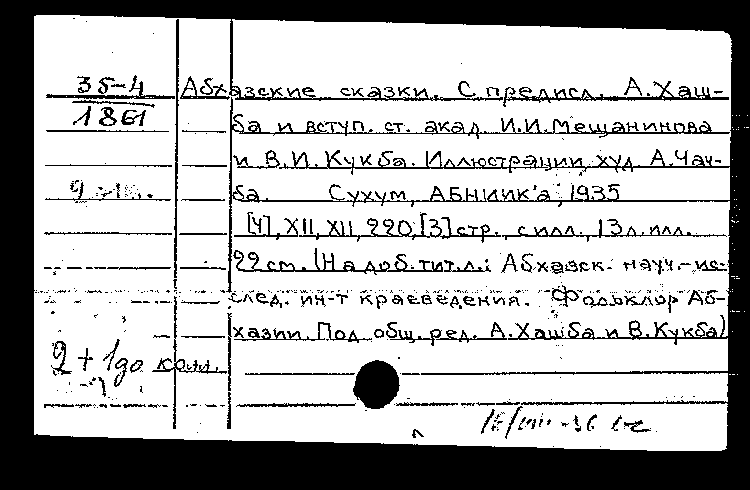 35-4
1861
Абхазские сказки. С предисл. А. Хаш-
ба и вступ. ст. акад. И.И. Мещанинова
и В.И. Кукба. Иллюстрации худ. А. Чач-
ба. Сухум, АБНИИК'а, 1935
[4], XII, XII, 220, [3] стр., с илл., 13 л. илл.
22 см. (На доб. тит. л.: Абхазск. науч.-ис-
след. ин-т краеведения. Фольклор Аб-
хазии. Под общ. ред. А. Хашба и В. Кукба)
2 + 1 до колл.